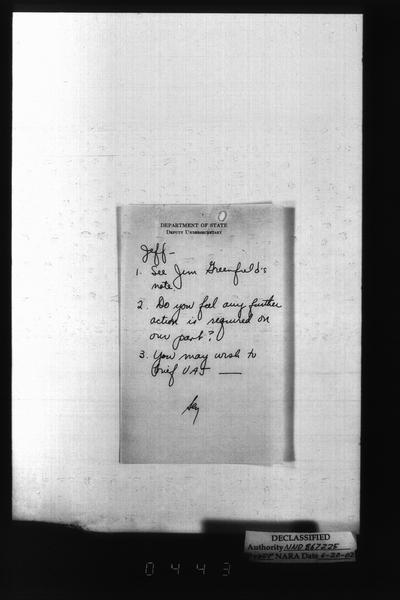 DEPARTMENT OF STATE
DEPUTY UNDERSECRETARY
Jeff-
1. See Jim Greenfield's
note.
2. Do you feel any further
action is required on
our part?
3. You may wish to
brief UAJ —
DECLASSIFIED
Authority NND 867225
NARA Date
0443